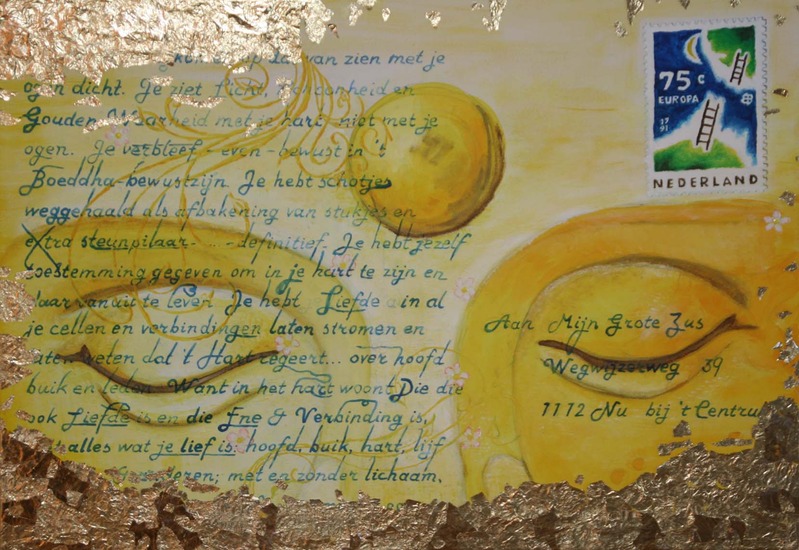 van zien met je
ogen dicht. Je ziet licht, schoonheid en
Gouden Waarheid met je hart - niet met je
ogen. Je verbleef - even - bewust in 't
Boeddha-bewustzijn. Je hebt schotjes
weggehaald als afbakening van stukjes en
extra steunpilaar. - definitief. Je hebt jezelf
toestemming gegeven om in je hart te zijn en
daar vanuit te leven. Je hebt Liefde in al
je cellen en verbindingen laten stromen en
laten weten dat 't Hart regeert... over hoofd
buik en leden. Want in het hart woont Die die
ook Liefde is en die Ene & Verbinding is,
alles wat je lief is: hoofd, buik, hart, lijf
met en zonder lichaam.
75 c
EUROPA
17
91
NEDERLAND
Aan Mijn Grote Zus
Wegwijzerweg 39
1112 Nu bij 't Centru